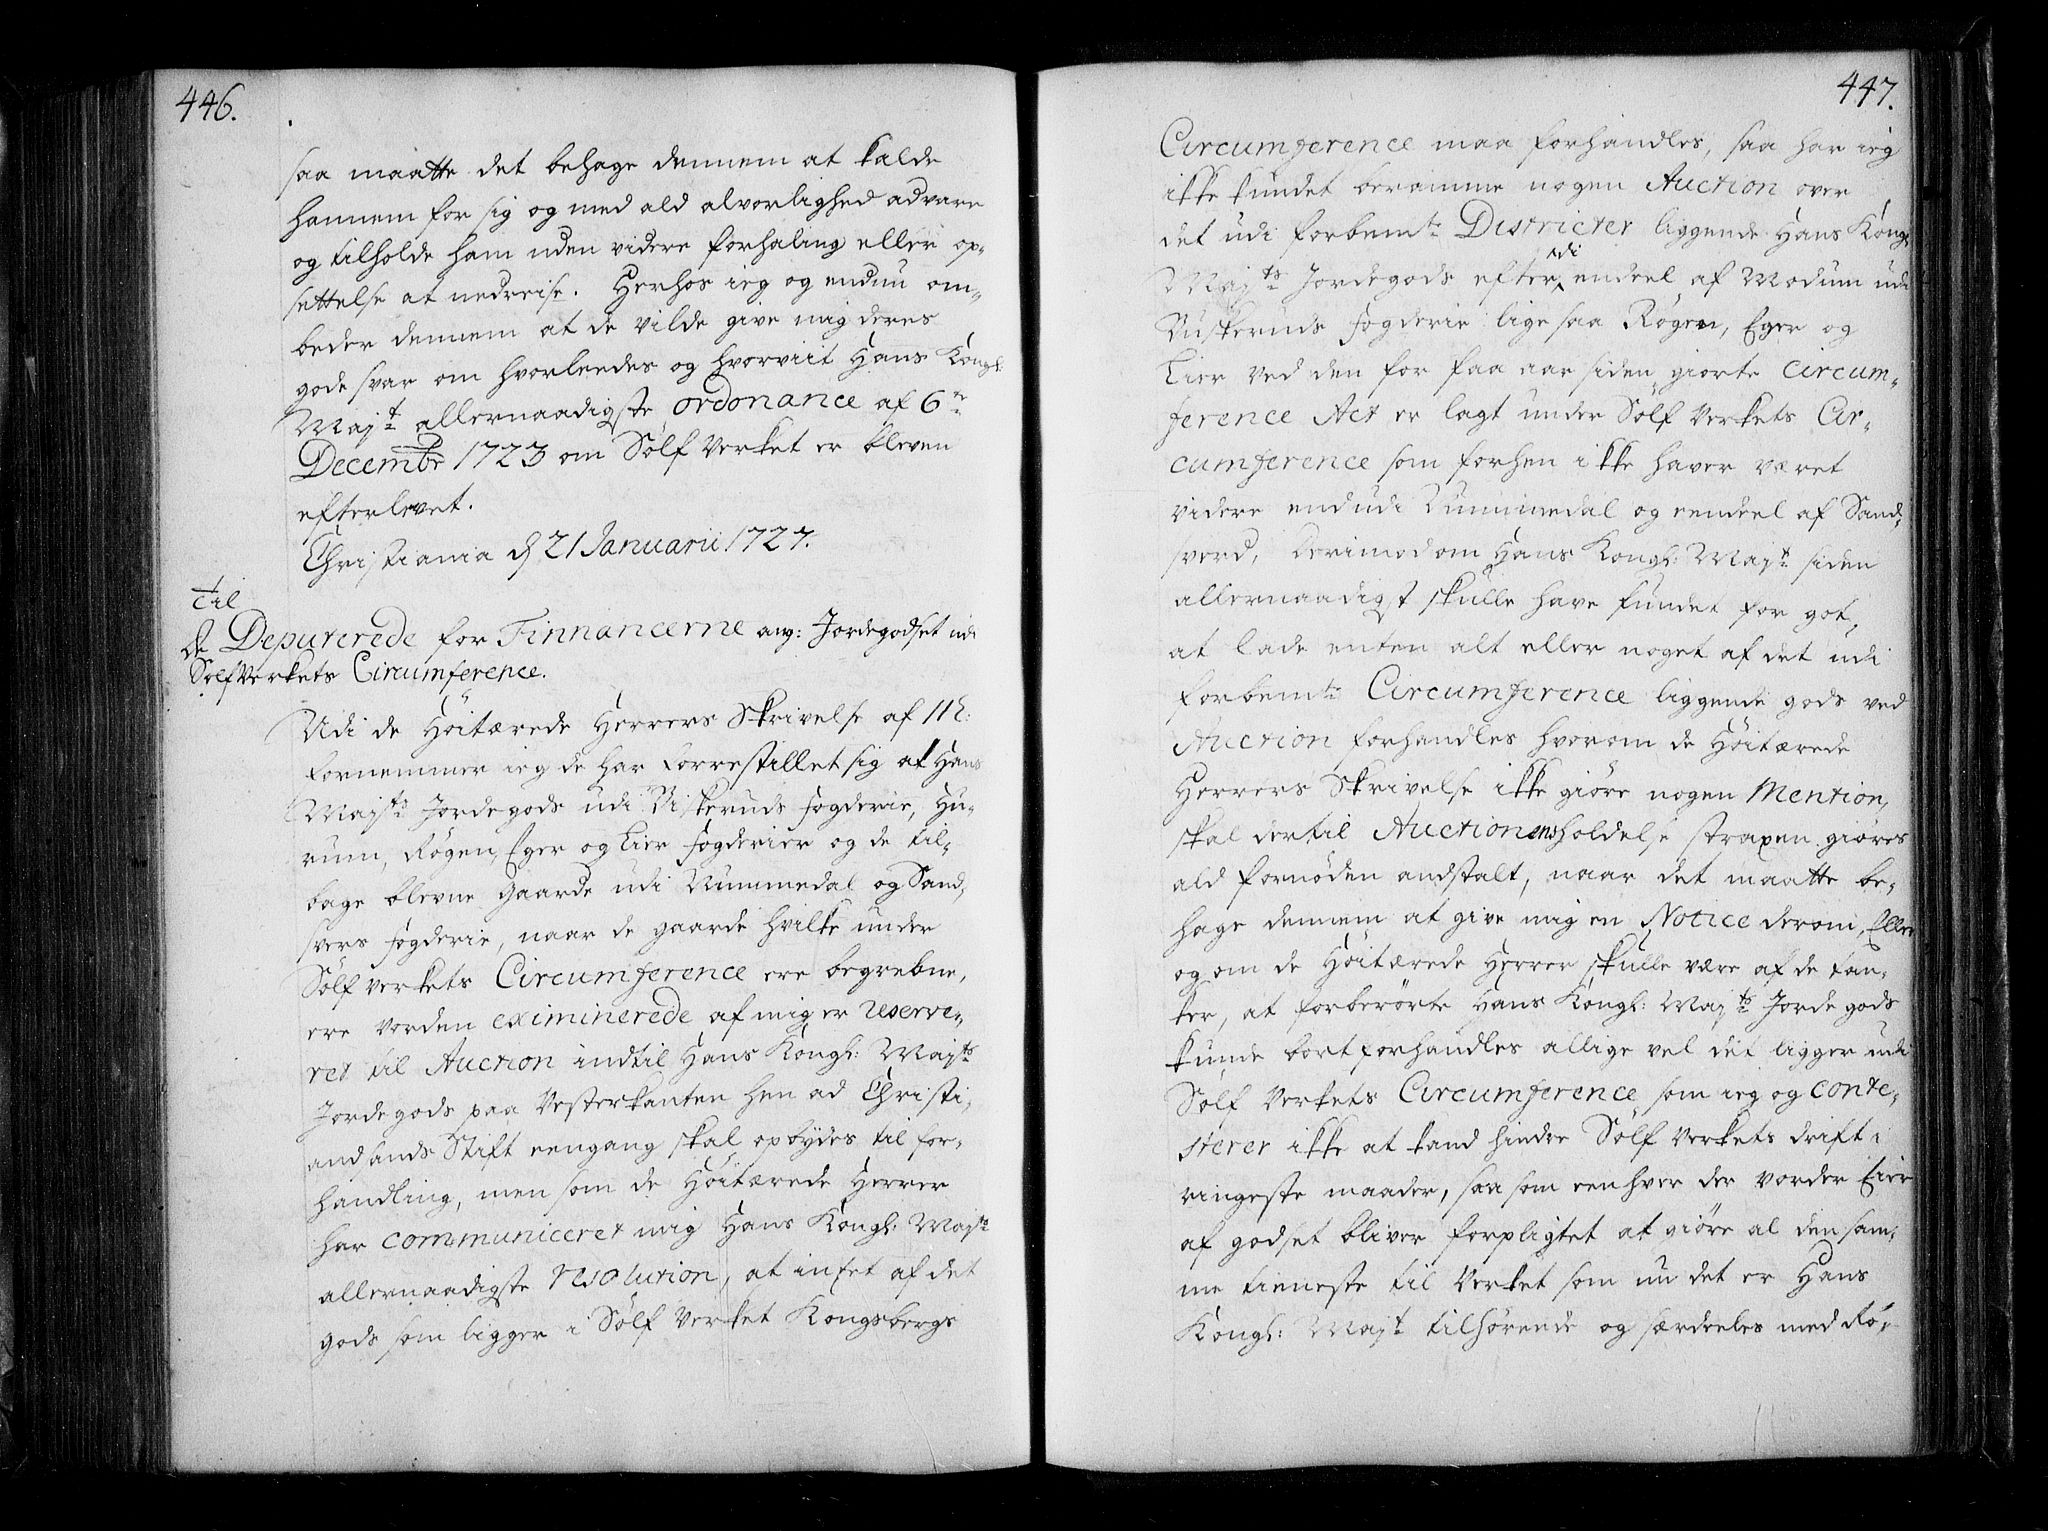 446.
saa maatte det behage dennem at kalde
hannem for sig og med ald alvorlighed advare
og tilholde ham uden videre forhaling eller op-
settelse at nedreise. Herhos ieg og enduu om-
beder dennem at de vilde give mig deres
gode svar om hvorleedes og hvorviit Hans Kongl:
Majt allernaadigste ordonance af 6te
Decembr 1723 om Sølf Verket er bleven
efterlevet.
Christiania d 21 Januarii 1727.
Til
de Deputerede for Finnancerne ang: Jordegodset udi
SølfVerkets Circumference.
Udi de Høitærede Herrers Skrivelse af 11t:
fornemmer ieg de har forrestillet sig at Hans
Majts Jordegods udi Buskeruds fogderie, Hu-
rum, Røgen, Eger og Lier fogderier og de til-
bage blevne Gaarde udi Nummedal og Sand-
svers fogderie, naar de gaarde hvilke under
Sølf verkets Circumference ere begrebne,
ere vorden eximinerede af mig er reserve-
ret til Auction indtil Hans Kongl: Majts
Jordegods paa Vesterkanten hen ad Christi-
andsands Stift eengang skal opbydes til for-
handling, men som de Høitærede Herrer
har communiceret mig Hans Kongl: Majts
allernaadigste resolution, at intet af det
gods som ligger i Sølf Verket Kongsbergs
447.
Circumference maa forhandles, saa har ieg
ikke kundet beramme nogen Auction over
det udi forbemte Districter liggende Hans Kongl
Majts Jordegods efterdi endeel af Modum udi
Buskeruds fogderie lige saa Røgen, Eger og
Lier ved den for faa aar siden giorte Circum-
ference Act er lagt under Sølf Verkets Cir-
cumference som forhen ikke haver været
videre end udi Nummedal og eendeel af Sand-
sverd, derimod om Hans Kongl: Majt siden
allernaadigst skulle have fundet for got,
at lade enten alt eller noget af det udi
forbemte Circumference liggende gods ved
Auction forhandles hvorom de Høitærede
Herrers Skrivelse ikke giøre nogen Mention,
skal dertil Auctionens holdelse straxen giøres
ald fornøden andstalt, naar det maatte be-
hage dennem at give mig en Notice derom, Eller
og om de Høitærede Herrer skulle være af de tan-
ker, at forberørte Hans Kongl: Majts Jordegods
kunde bortforhandles allige vel det ligger udi
Sølf Verkets Circumference som ieg og conte-
sterer ikke at kand hindre Sølf Verkets drift i
ringeste maader, saasom eenhver der vorder Eier
af godset bliver forpligtet at giøre al den sam-
me tieneste til Verket som nu det er Hans
Kongl: Majt tilhørende og særdeeles med Rø-